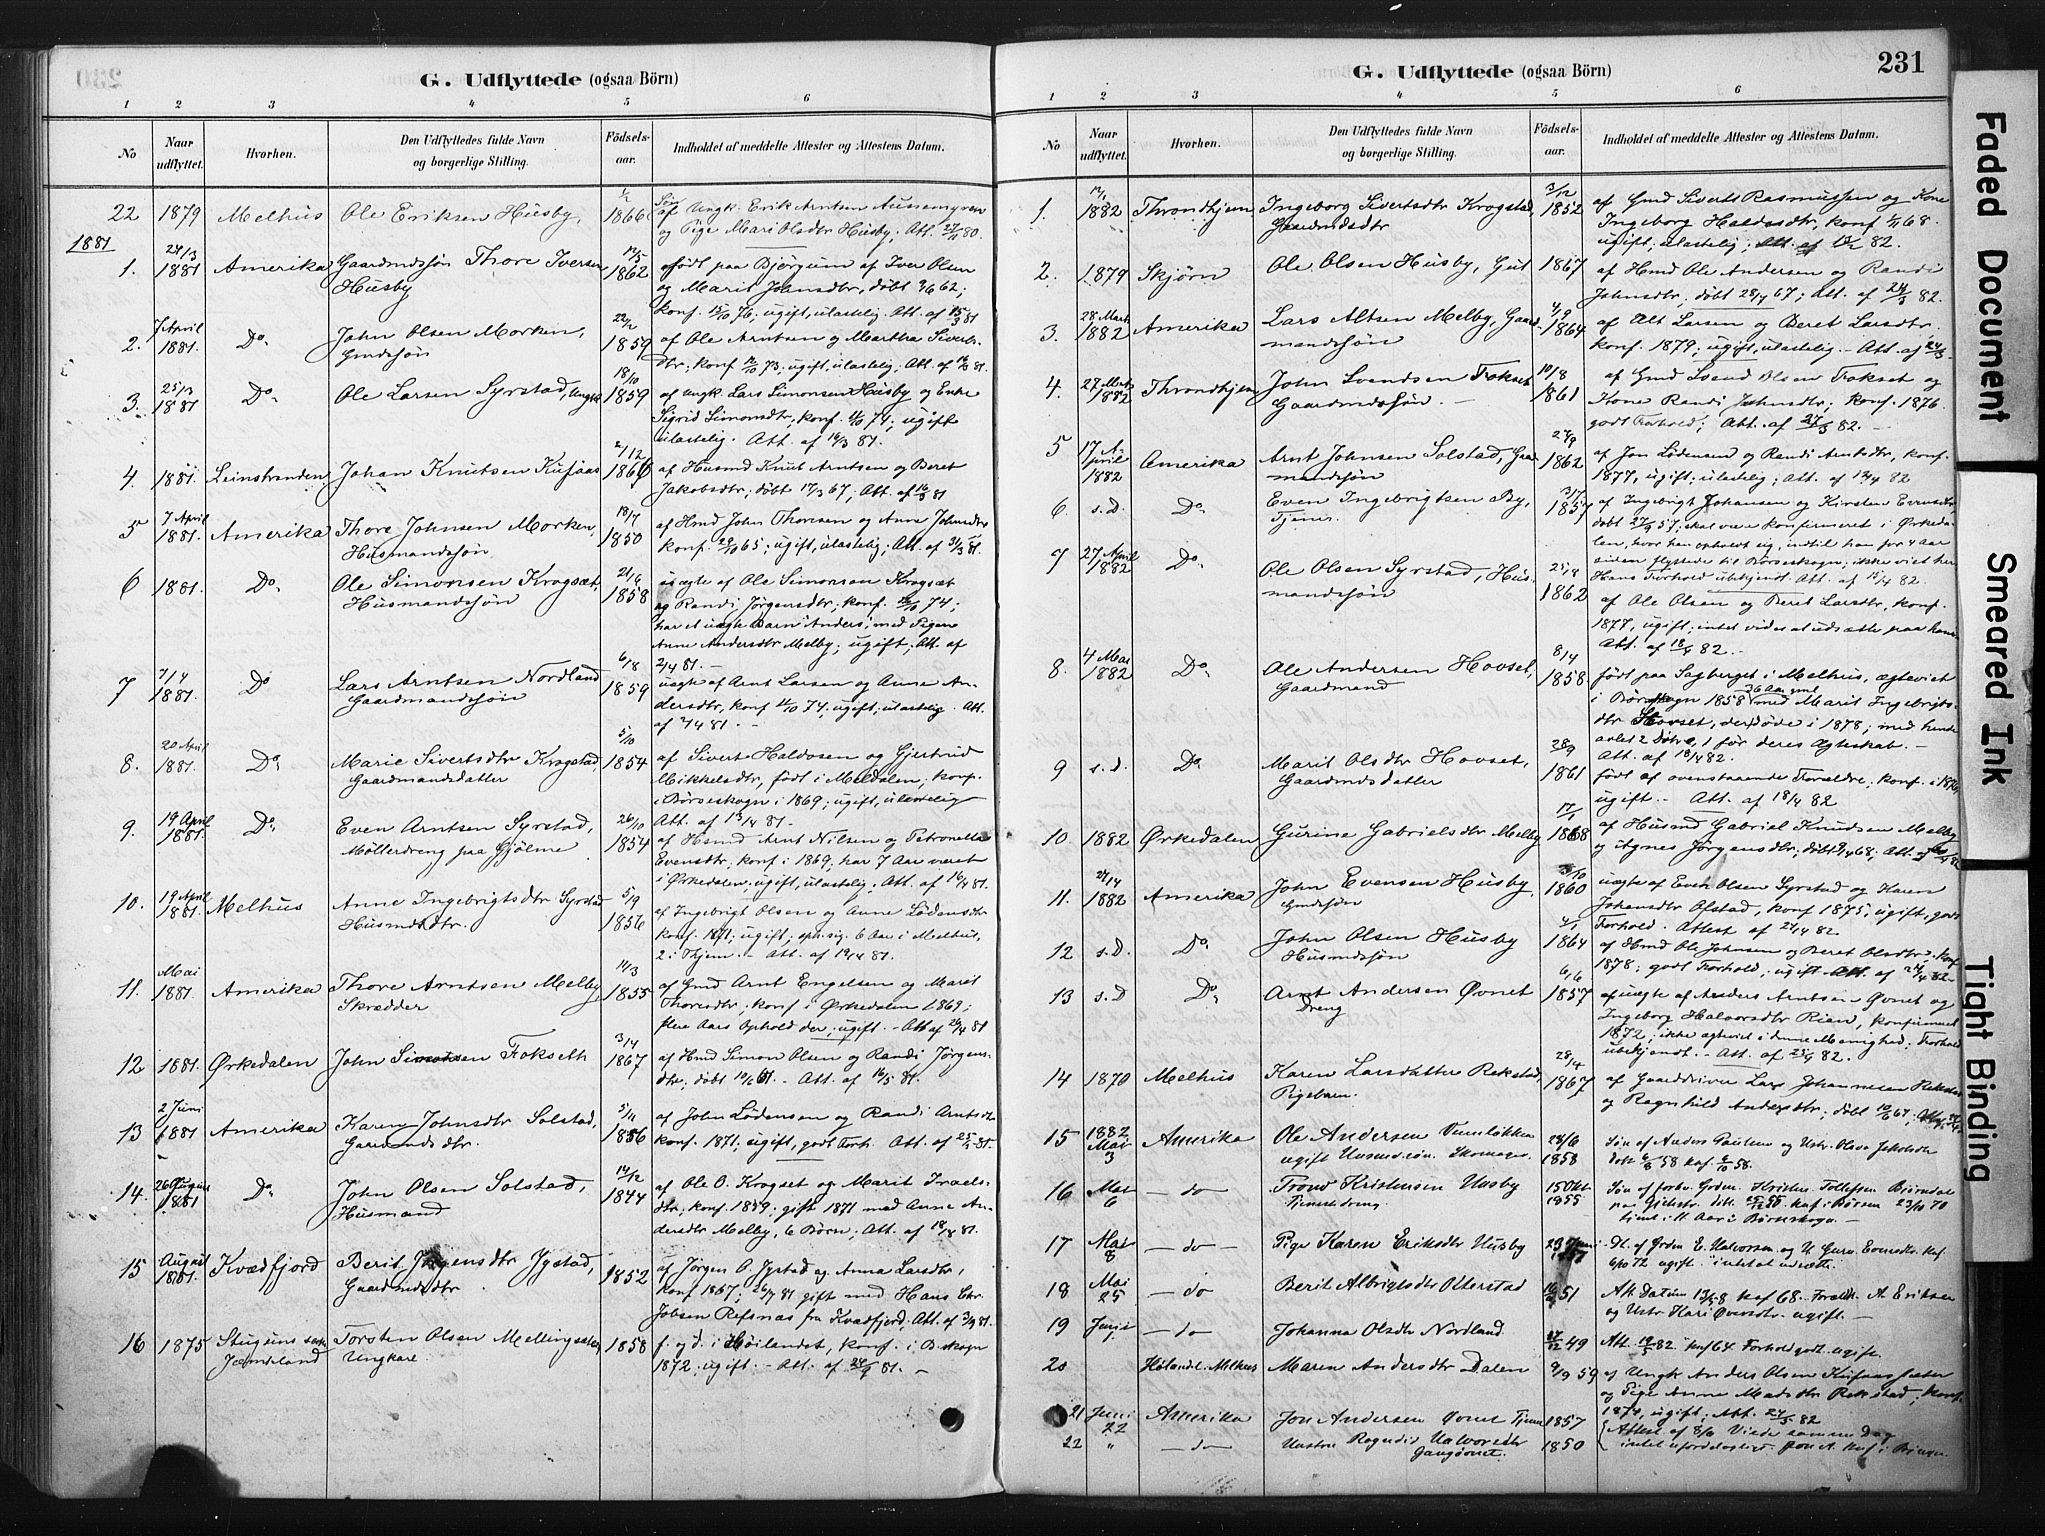 230
G. Udflyttede (ogsaa Börn)
1 2 3 4 5 6
No Naar udflyttet. Hvorhen. Den Udflyttedes fulde Navn og borgerlige Stilling. Födselsaar. Indholdet af meddelte Attester og Attestens Datum.
22 1879 Melhus Ole Eriksen Husby, 1/2 1866 Søn af Ungk. Erik Arntsen
og Pige Mari Olsdtr Husby; Att. 80.
1881
1. 24/3 1881 Amerika Gaardmdssøn Thore Iversen 17/5 1862 født paa Bjørgum af Iver Olsen
Husby og Marit Johnsdtr, døbt 62;
konf. 15/10 76; ugift, ulastelig. Att. af 15/3 81
2. 7 April 1881. Do John Olsen Morken, 22/2 1859 af Ole Arntsen og Martha Siverts-
Gmdssøn dtr; konf 12/10 73; ugift, ulastelig; Att. af 81.
3. 25/3 1881 Do Ole Larsen Syrstad, Ungk 18/10 1859 af Ungk. Lars Simonsen Husby og Enke
Sigrid Simonsdtr; konf. 74; ugift
ulastelig. Att. af 14/3 81.
4. 1881. Leinstranden Johan Knutsen Kufaas 2/12 1866 af Husmd Knut Arntsen og Beret
Jakobsdtr; døbt 17/3 67; Att. af 81
5 7 April 1881. Amerika Thore Johnsen Morken, 18/7 1850 af Hmd John Thoresen og Anne Johnsdtr
Husmandssøn konf. 65; ugift, ulastelig; Att. af 31/3 81.
6 1881. Do Ole Simonsen Krogsæt, 21/6 1858 uægte af Ole Simonsen Krogsæt
Husmandssøn og Randi Jørgensdtr; konf. 74;
har et uægte Barn "Anders", med Pigen
Anne Andersdtr Melby; ugift. Att. af
2/4 81. —
7 7/4 1881. Do Lars Arntsen Nordland 6/8 1859 uægte af Arnt Larsen og Anne An-
Gaardmandssøn dersdtr, konf 11/10 74, ugift, ulastelig. Att.
af 7/4 81. —
8. 20 April 1881. Do Marie Sivertsdtr Krogstad, 5/10 1854 af Sivert Haldosen og Gjertrud
Gaardmandsdatter Mikkelsdtr, født i Meldalen, konf.
i Børseskogn i 1869; ugift, ulastelig
Att. af 13/4 81. —
9. 19 April 1881. Do Even Arntsen Syrstad, 26/10 1854 af Hsmd Arnt Nilsen og Petronelle
Møllerdreng paa Gjølme Evensdtr, konf. i 1869, har 7 Aar været
i Ørkedalen; ugift, ulastelig. Att. af 16/4 81.
10. 19 April 1881 Melhus Anne Ingebrigtsdtr Syrstad 5/9 1856 af Ingebrigt Olsen og Anne Lødensdtr
Husmdsdtr. konf. 1871; ugift; oph. sig. 6 Aar i Melhus,
2 i Thjem. - Att. af 19/4 81.
11. Mai 1881. Amerika Thore Arntsen Melby, 14/3 1855 af Gmd Arnt Engelsen og Marit
Skrædder Thoresdtr; konf. i Ørkedalen 1869;
flere Aars Ophold der; ugift. - Att. af 26/4 81
12 1881. Ørkedalen John Simonsen Fokseth 3/4 1867 af Hmd Simon Olsen og Randi Jørgens-
dtr; døbt 10/6 67. - Att. af 16/5 81.
13 2 Juni 1881 Amerika Karen Johnsdtr Solstad, 5/11 1856 af John Lødensen og Randi Arntsdtr
Garmdsdtr. konf. 1871; ugift, godt Forh. Att. af 25/5 81.
14. 26 August 1881 Do John Olsen Solstad, 14/12 1844 af Ole O. Krogset og Marit Israels-
Husmand dtr; konf. 1859; gift 1871 med Anne An-
dersdtr Melby, 6 Børn; Att. af 18/8 81.
15 August 1881. Kvædfjord Berit Jørgensdtr Jystad, 1852 af Jørgen O. Jystad og Anna Larsdtr,
Gaardmdsdtr konf 1867; 81 gift med Hans Chr.
Jobsen Refsnæs fra Kvædfjord; Att. af 81.
16 1875 Stuguns Torsten Olsen Mellingsæter, 1858 f. og d. i Høilandet, konf. i B.skogn
Jæmtland Ungkarl. 1872, ugift. - Att. af 81. —
231
G. Udflyttede (ogsaa Börn)
1 2 3 4 5 6
No Naar udflyttet. Hvorhen. Den Udflyttedes fulde Navn og borgerlige Stilling. Födselsaar. Indholdet af meddelte Attester og Attestens Datum.
1. 12/1 1882 Throndhjem Ingeborg Sivertsdtr Krogstad, 3/12 1852 af Gmd Sivert Rasmussen og Kone
Gaardmdsdtr Ingeborg Haldosdtr, konf 68.
ugift, ulastelig; Att. af 82.
2. 1879 Skjørn Ole Olsen Husby, Gut 1867 af Hmd Ole Andersen og Randi
Johnsdtr, døbt 67; Att. af 24/3 82.
3. 28 Marts 1882 Amerika Lars Altsen Melby, Gaard- 4/9 1864 af Alt Larsen og Beret Larsdtr.
mandssøn konf. 1879; ugift, ulastelig. - Att. af 24/3
4. 27 Marts 1882 Throndhjem John Svendsen Fokset 10/8 1861 af Gmd Svend Olsen Fokset og
Gaardmdssøn. — Kone Randi Johnsdtr; konf. 1876.
godt Forhold; Att. af 27/3 82. —
5 17 April 1882 Amerika Arnt Johnsen Solstad, Gaard- 27/9 1862 af Jon Lødensen og Randi Arntsdtr, konf.
mandssøn 1877, ugift; ulastelig; Att. af 82
6. s.D. Do Even Ingebrigtsen By, 1857 af Ingebrigt Johansen og Kirsten Evensdtr
Tjener. døbt 27/9 57; skal være konfirmeret i Ørkeda-
len, hvor han opholdt sig, indtil han for 4 Aar
siden flyttede til Børseskogn; ikke viet her
Hans Forhold ubekjendt. Att. af 15/4 82.
7 27 April 1882 Do Ole Olsen Syrstad, Hus- 1862 af Ole Olsen og Beret Larsdtr, konf.
mandssøn 1877, ugift; intet vides at udsætte paa ham
Att. af 82. —
8. 4 Mai 1882 Do Ole Andersen Hovset, 8/4 1858 født paa Sagberget i Melhus, ægteviet
Gaardmand i Børseskogn 1858 26 Aar gml med Marit Ingebrigts-
dtr Hovset, der døde i 1878; med hende
avlet 2 Døtre, 1 før deres Ægteskab. —
Att. af 18/4 82.
9 s.D. Do Marit Olsdtr Hovset, 28/9 1861 født af ovenstaaende Forældre; konf. i 1876
Gaardmdsdatter ugift. — Att. af 18/4 82
10 1882 Ørkedalen Gurine Gabrielsdtr Melby 17/1 1868 af Husmd Gabriel Knudsen Melby
og Agnes Jørgensdtr; døbt 68; Att. af 82
11. 24/4 1882 Amerika John Evensen Husby, 3/10 1860 uægte af Even Olsen Syrstad og Karen
Gmdssøn Johansdtr Ofstad, konf 1875, ugift, godt
Forhold. Attest af 24/4 82.
12 s.D. Do John Olsen Husby 4/1 1864 af Hmd Ole Johnsen og Beret Olsdtr; konf
Husmdssøn 1878; godt Forhold, ugift. Att. af 24/4 82
13 s.D Do Arnt Andersen Øvnet 6/6 1857 uægte af Anders Arntsen Øvnet og
Dreng Ingeborg Halvorsdtr Rien, konfirmeret
1872; ikke ægteviet i denne Menighed; Forhold
ubekjendt. - Att. af 82.
14 1870 Melhus Karen Larsdatter Rekstad, 28/4 1867 af Gaarddriver Lars Johannesen Rekstad
Pigebarn. og Ragnhild Andersdtr; døbt 10/6 67;
15 1882 Mai 3 Amerika Ole Andersen Vennløkken 28/6 1858 Søn af Anders Paulsen og Ustr. Olava Jakobsdtr
ugift Husmdssøn. Skomager. døbt 58 kof. 58.
16 Mai 6 — do Trond Kristensen Husby 15 Okt 1855 Søn af forhv. Grdm. Kristen Tollefsen Bjørndal
Tjenestedreng. kof. i Børsen 23/10 70
tjent i 11 Aar i Børseskogn. —
17 Mai 8 — do — Pige Karen Eriksdtr Husby 23 Juni 1857 Dt. af Grdm E. Halvorsen og H. Guru Evensdtr. kof.
6/10 72 ugift. intet at udsætte.
18 Mai 25 — do Berit Albrigtsdtr Olterstad 51 Att. Datum kof 68. Foræld. A. Eriksen
og Ustr Kari Oversdtr. ugift. —
19 Juni 1 — do Johanna Olsdtr Nordland. 17/12 49 Att. 19/5 82. kof 64. Forhold godt. ugift
20 Hølandet Melhus Maren Andersdtr Dalen 9/9 59 af Ungk Anders Olsen Kufaassæter
og Pige Anne Madsdtr Rekstad; konf.
1874, ugift; Att. 24/5 82
21 Juni 22 Amerika Jon Andersen Øvnet Tjener 1857 Attest af 8/6 Viede samme Dag
22 " — do — Hustru Ragndi Halvorsdtr 1850 intet ufordelagtigt. Jon A. kof. i Børsen
Gangsønet.
Faded Document
Smeared Ink
Tight Binding